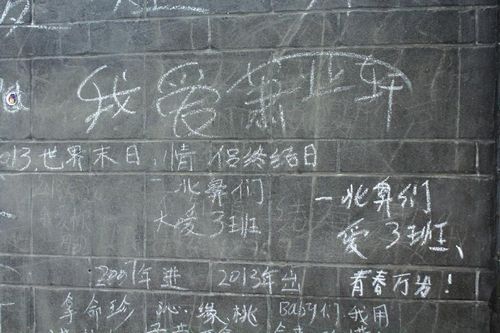 我爱萧亚轩
013.世界末日,情侣终结日
一北鼻们
大爱3班
一北鼻们
爱3班、
2007年进 2013年出 青春万岁!
拿命珍 沁缘桃 Baby们我用